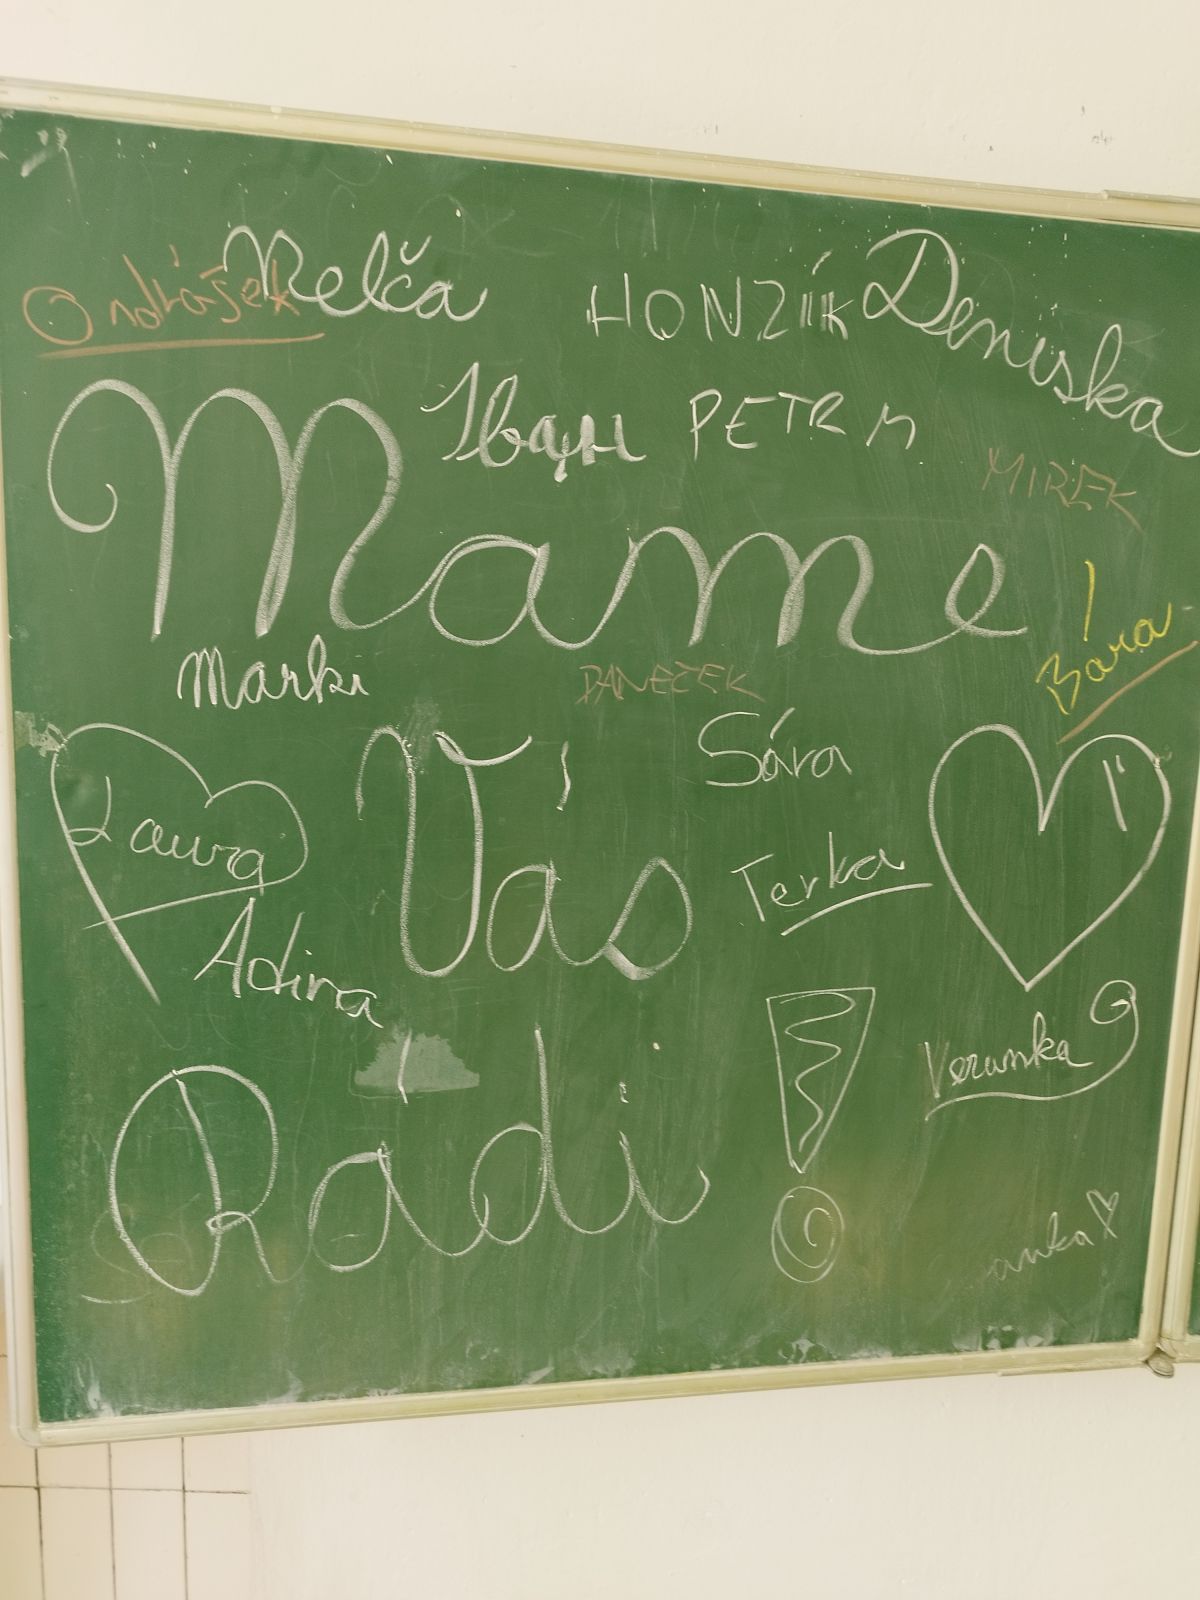 Ondrášek Nelča HONZÍK Deniska
Іван PETR M
MIREK
Máme
Bára
Marki DANEČEK
Sára
Laura Vás
Terka
Adina
Verunka
Rádi !